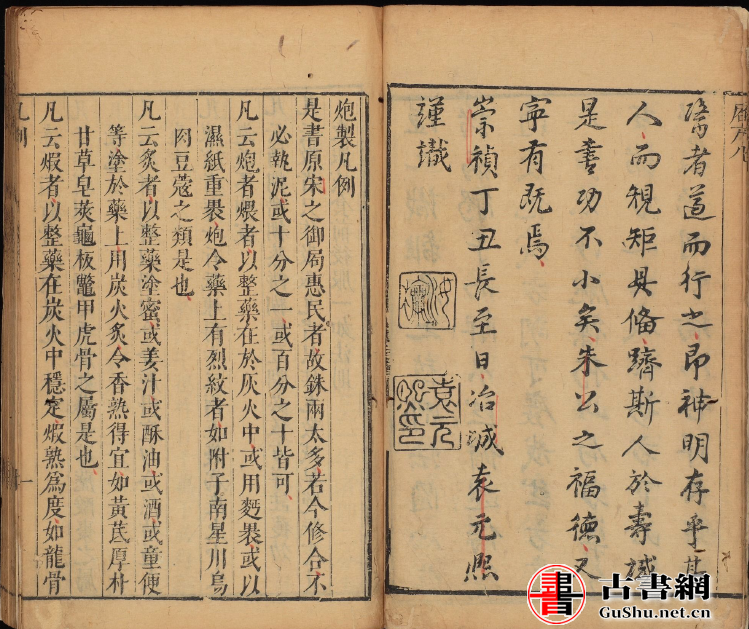 醫者道而行之即神明存乎其
人而規矩具備躋斯人於壽域
是書功不小矣朱公之福德又
寧有既焉
崇禎丁丑長至日冶城袁元熙
謹識
袁元熙印
炮製凡例
是書原宋之御局惠民者故銖兩太多若今修合不
必執泥或十分之一或百分之十皆可
凡云炮者煨者以整藥在於灰火中或用麪褁或以
濕紙重褁炮令藥上有烈紋者如附子南星川烏
肉豆蔻之類是也
凡云炙者以整藥塗蜜或姜汁或酥油或酒或童便
等塗於藥上用炭火炙令香熟得宜如黃芪厚朴
甘草皂莢龜板鼈甲虎骨之屬是也
凡云煆者以整藥在炭火中穩定煆熟爲度如龍骨
凡例 一
書 古書網
GuShu.net.cn